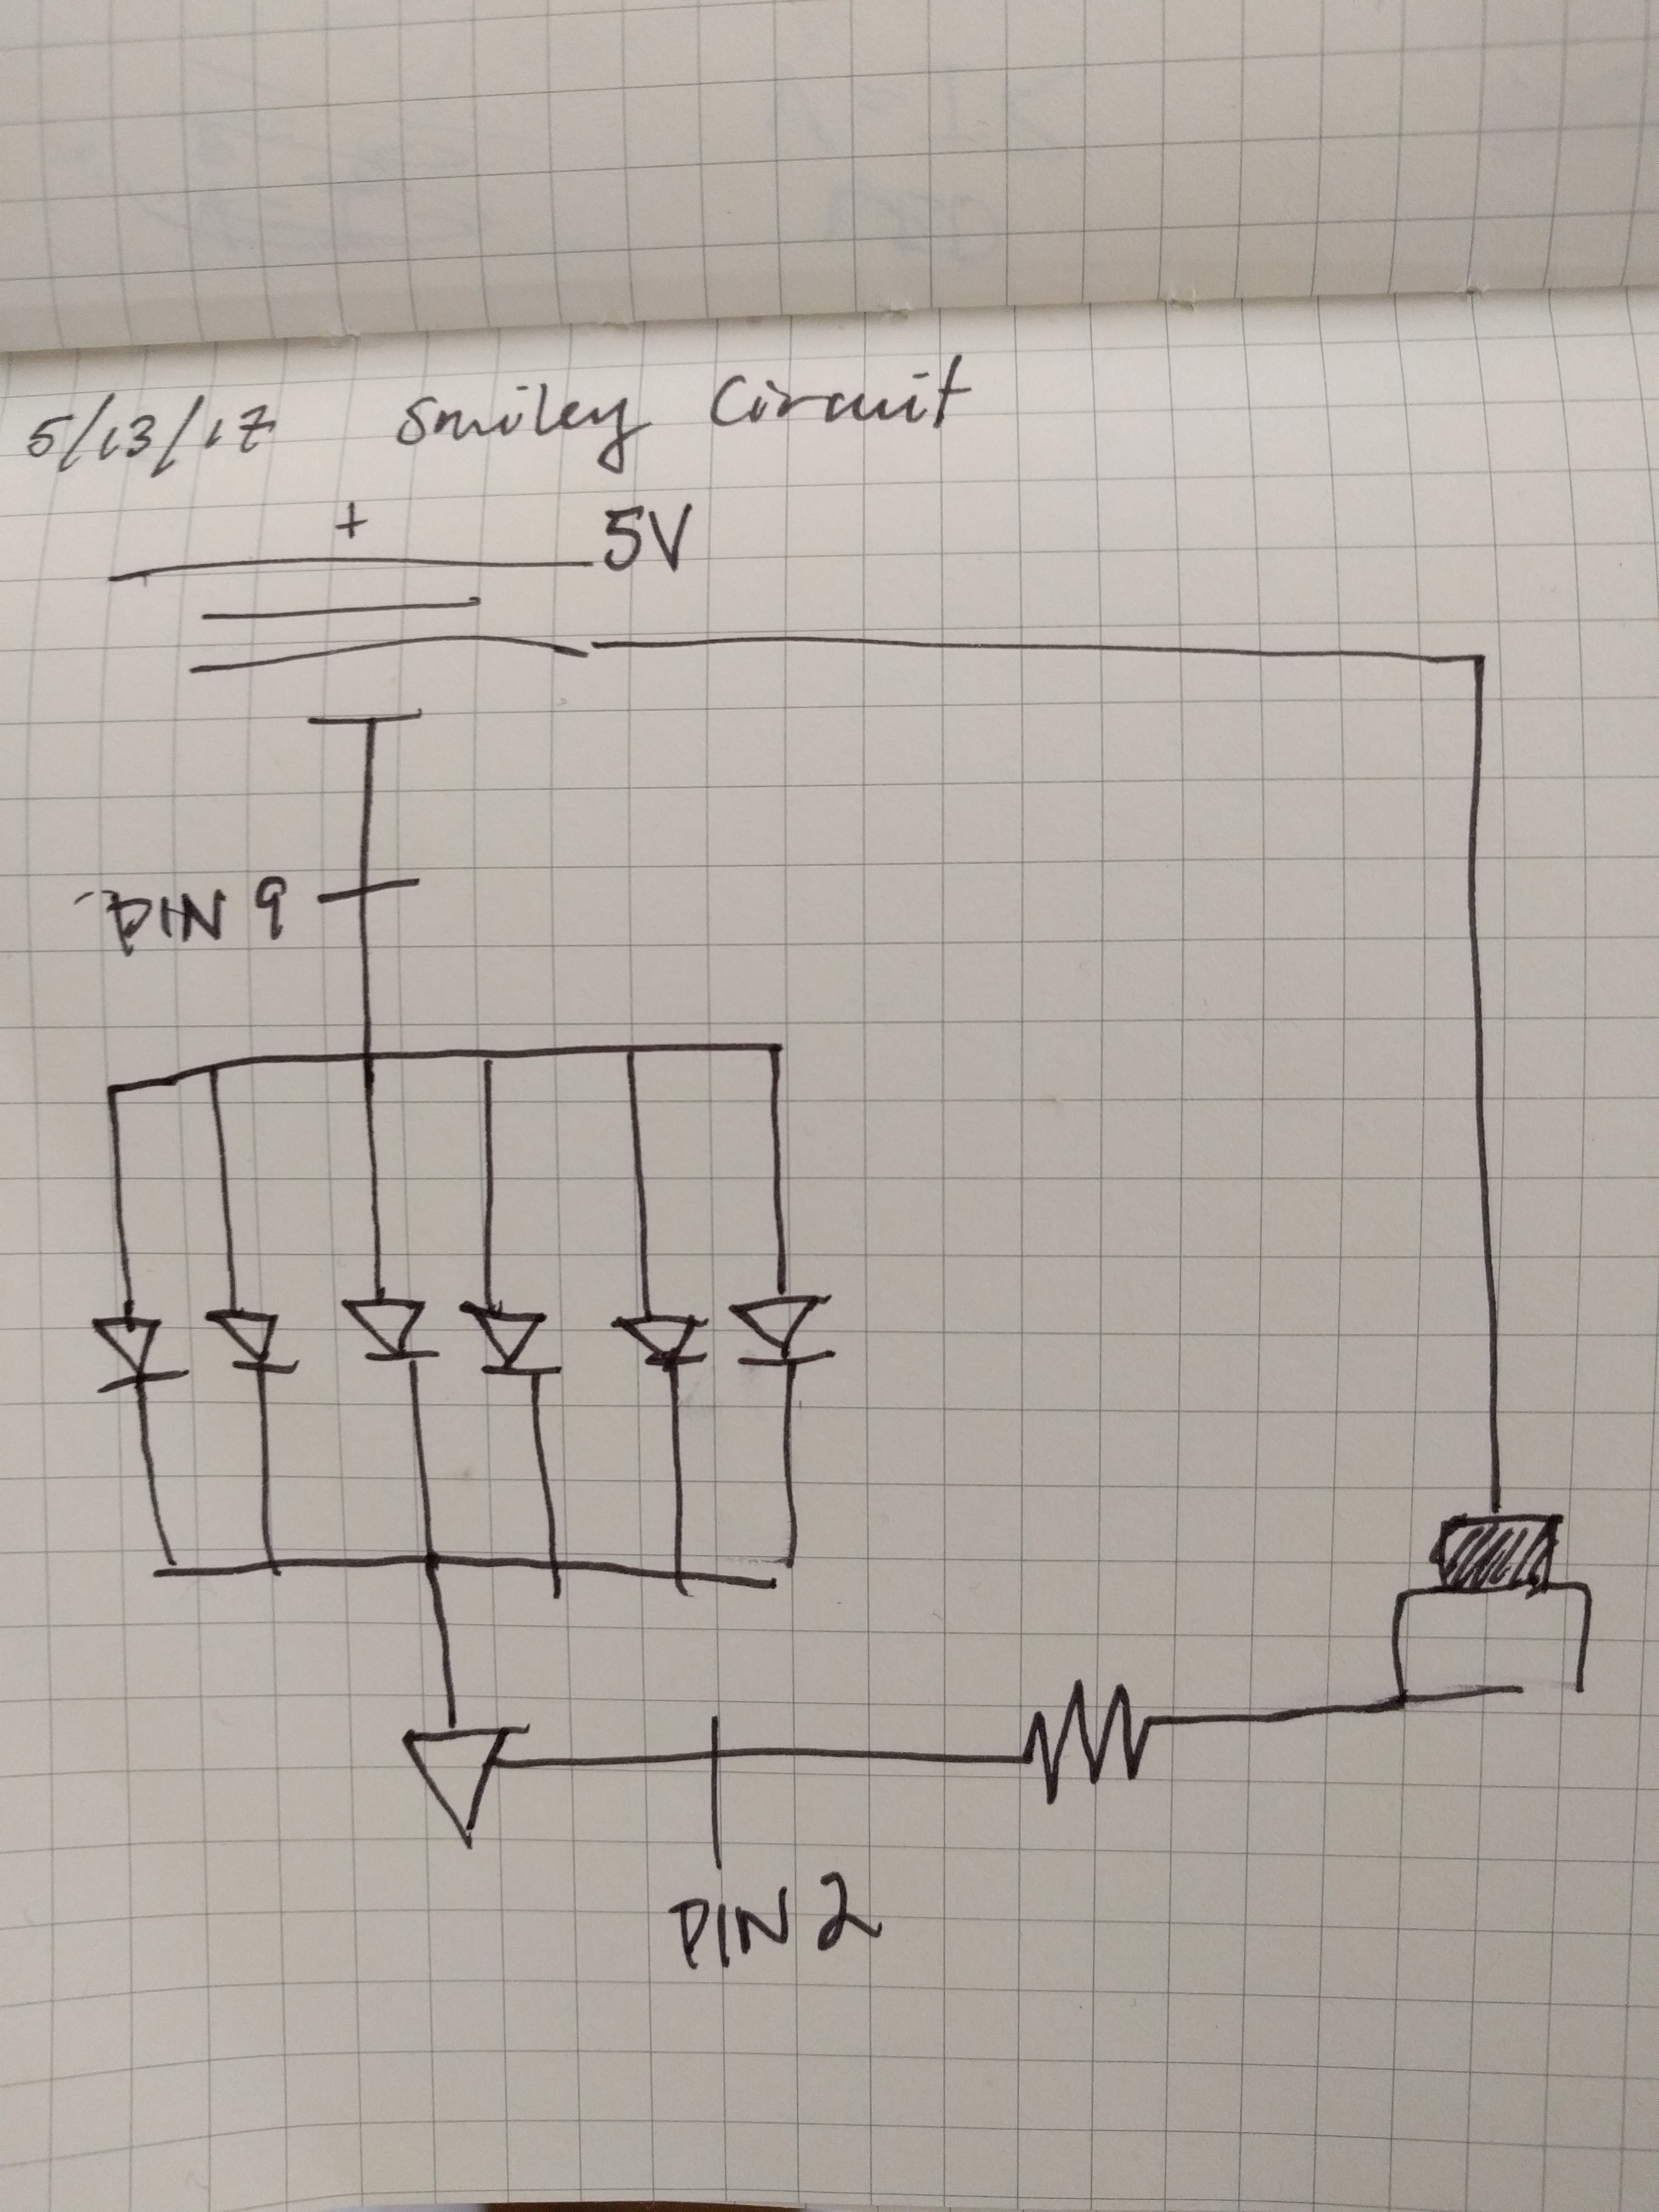 5/13/17 Smiley Circuit
+
5V
PIN 9
PIN 2